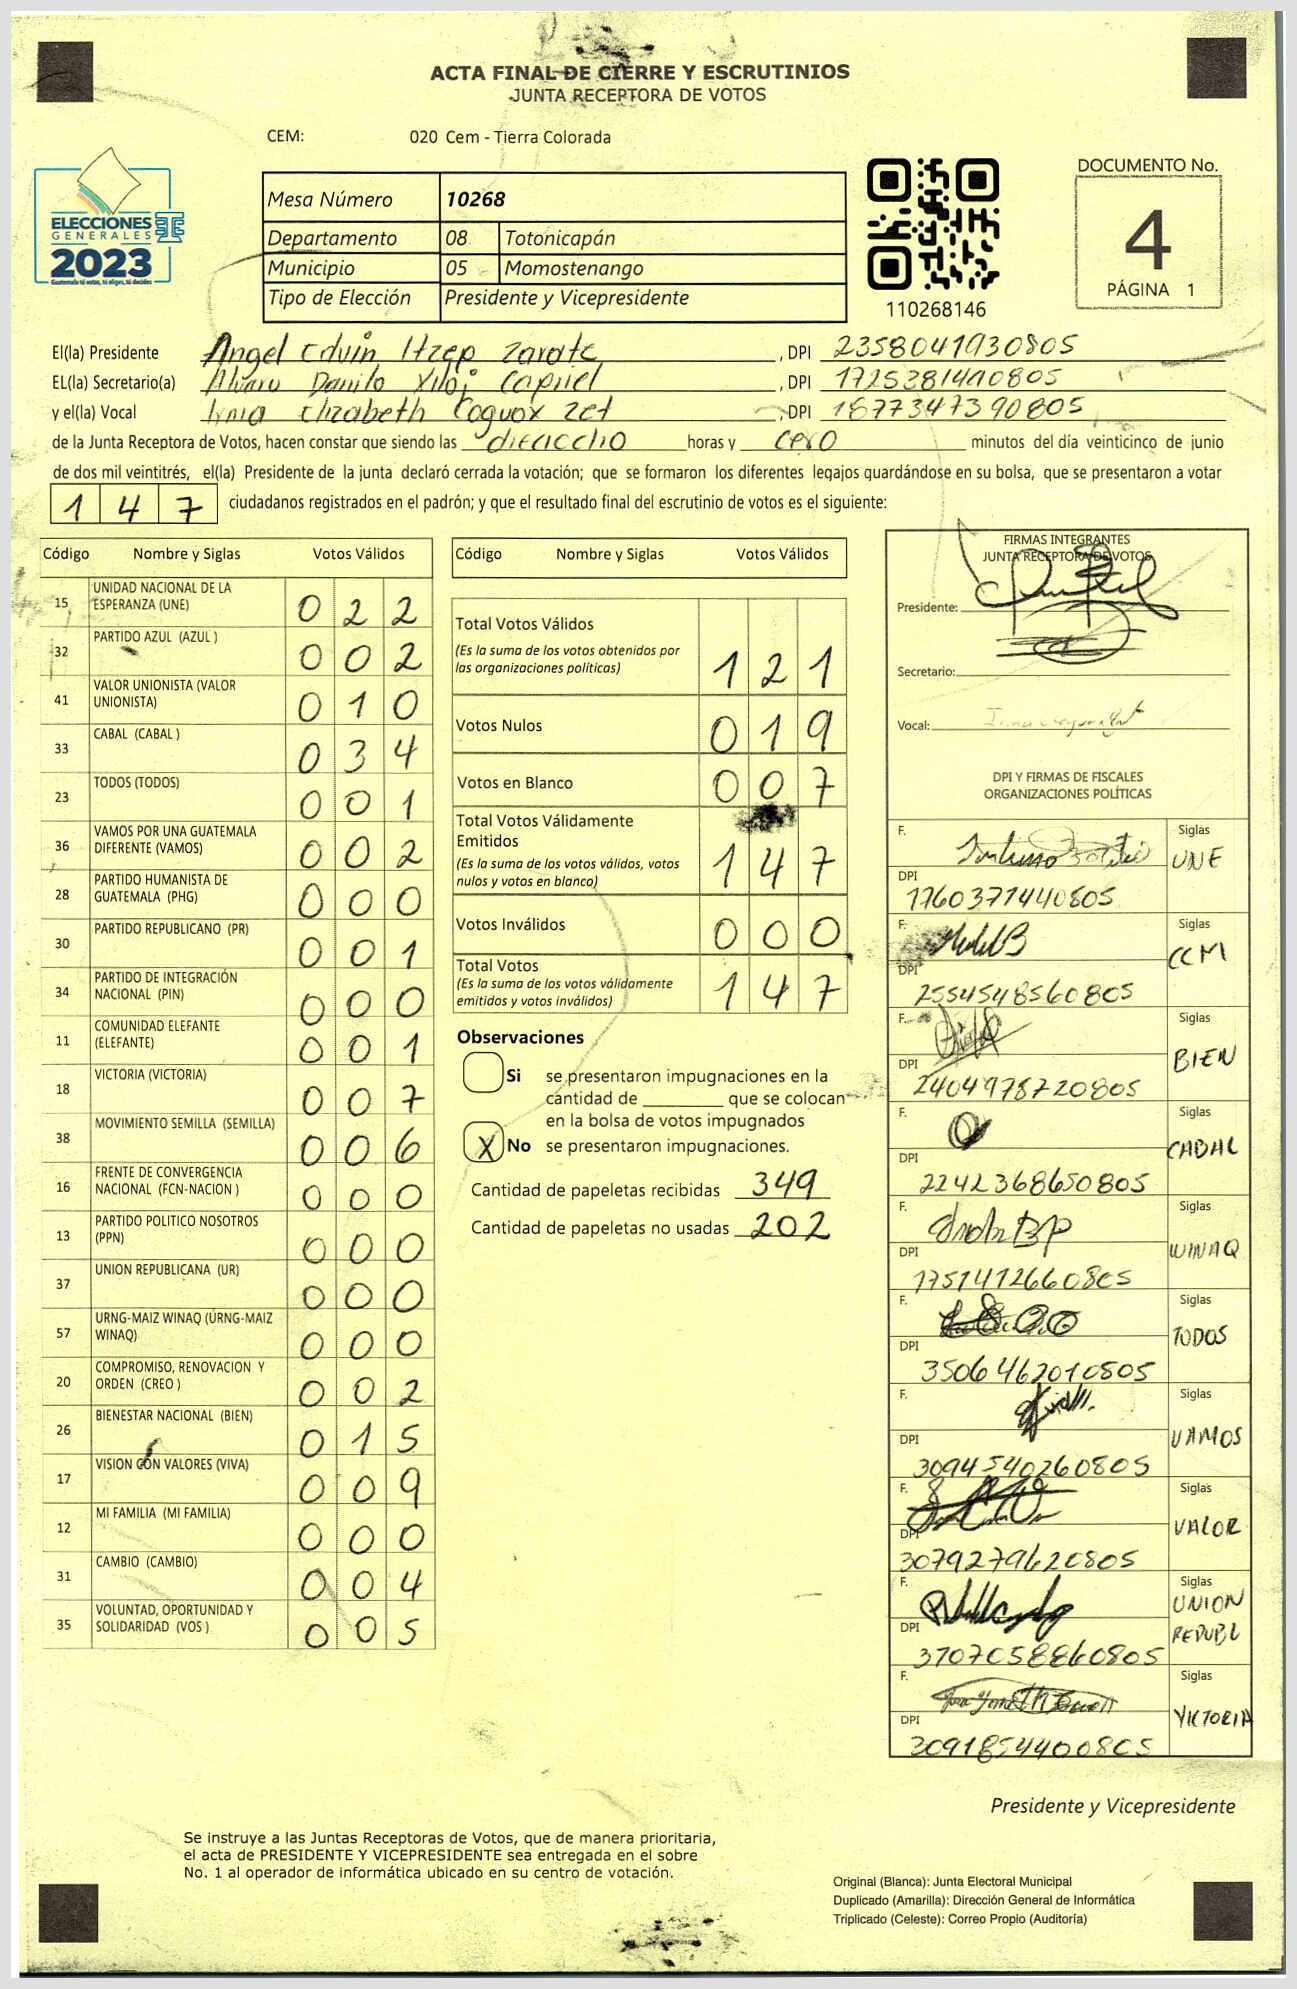 ACTA FINAL DE CIERRE Y ESCRUTINIOS
JUNTA RECEPTORA DE VOTOS
CEM: 020 Cem - Tierra Colorada
ELECCIONES
GENERALES
2023
Guatemala tú votas, tú eliges, tú decides
Mesa Número 10268
Departamento 08 Totonicapán
Municipio 05 Momostenango
Tipo de Elección Presidente y Vicepresidente
110268146
DOCUMENTO No.
4
PÁGINA 1
El(la) Presidente Angel Edvin Itzep Zarate, DPI 2358041930805
EL(la) Secretario(a) Alvaro Danilo Xiloj Capriel, DPI 1725381410805
y el(la) Vocal Irma Elizabeth Coguox Zet, DPI 1877347390805
de la Junta Receptora de Votos, hacen constar que siendo las dieciocho horas y cero minutos del día veinticinco de junio
de dos mil veintitrés, el(la) Presidente de la junta declaró cerrada la votación; que se formaron los diferentes legajos guardándose en su bolsa, que se presentaron a votar
1 4 7 ciudadanos registrados en el padrón; y que el resultado final del escrutinio de votos es el siguiente:
Código Nombre y Siglas Votos Válidos
15 UNIDAD NACIONAL DE LA ESPERANZA (UNE) 0 2 2
32 PARTIDO AZUL (AZUL ) 0 0 2
41 VALOR UNIONISTA (VALOR UNIONISTA) 0 1 0
33 CABAL (CABAL ) 0 3 4
23 TODOS (TODOS) 0 0 1
36 VAMOS POR UNA GUATEMALA DIFERENTE (VAMOS) 0 0 2
28 PARTIDO HUMANISTA DE GUATEMALA (PHG) 0 0 0
30 PARTIDO REPUBLICANO (PR) 0 0 1
34 PARTIDO DE INTEGRACIÓN NACIONAL (PIN) 0 0 0
11 COMUNIDAD ELEFANTE (ELEFANTE) 0 0 1
18 VICTORIA (VICTORIA) 0 0 7
38 MOVIMIENTO SEMILLA (SEMILLA) 0 0 6
16 FRENTE DE CONVERGENCIA NACIONAL (FCN-NACION ) 0 0 0
13 PARTIDO POLITICO NOSOTROS (PPN) 0 0 0
37 UNION REPUBLICANA (UR) 0 0 0
57 URNG-MAIZ WINAQ (URNG-MAIZ WINAQ) 0 0 0
20 COMPROMISO, RENOVACION Y ORDEN (CREO ) 0 0 2
26 BIENESTAR NACIONAL (BIEN) 0 1 5
17 VISION CON VALORES (VIVA) 0 0 9
12 MI FAMILIA (MI FAMILIA) 0 0 0
31 CAMBIO (CAMBIO) 0 0 4
35 VOLUNTAD, OPORTUNIDAD Y SOLIDARIDAD (VOS ) 0 0 5
Código Nombre y Siglas Votos Válidos
Total Votos Válidos
(Es la suma de los votos obtenidos por
las organizaciones políticas) 1 2 1
Votos Nulos 0 1 9
Votos en Blanco 0 0 7
Total Votos Válidamente
Emitidos
(Es la suma de los votos válidos, votos
nulos y votos en blanco) 1 4 7
Votos Inválidos 0 0 0
Total Votos
(Es la suma de los votos válidamente
emitidos y votos inválidos) 1 4 7
Observaciones
Si se presentaron impugnaciones en la
cantidad de ________ que se colocan
en la bolsa de votos impugnados
X No se presentaron impugnaciones.
Cantidad de papeletas recibidas 349
Cantidad de papeletas no usadas 202
FIRMAS INTEGRANTES
JUNTA RECEPTORA DE VOTOS
Presidente:
Secretario:
Vocal:
DPI Y FIRMAS DE FISCALES
ORGANIZACIONES POLÍTICAS
F. Siglas UNE
DPI 1760371440805
F. Siglas CCM
DPI 2554548560805
F. Siglas BIEN
DPI 2404978720805
F. Siglas CABAL
DPI 2242368650805
F. Siglas WINAQ
DPI 1751412660805
F. Siglas TODOS
DPI 3506462010805
F. Siglas VAMOS
DPI 3094540260805
F. Siglas VALOR
DPI 3079279620805
F. Siglas UNION REPUBL
DPI 3707058860805
F. Siglas VICTORIA
DPI 3091854400805
Presidente y Vicepresidente
Se instruye a las Juntas Receptoras de Votos, que de manera prioritaria,
el acta de PRESIDENTE Y VICEPRESIDENTE sea entregada en el sobre
No. 1 al operador de informática ubicado en su centro de votación.
Original (Blanca): Junta Electoral Municipal
Duplicado (Amarilla): Dirección General de Informática
Triplicado (Celeste): Correo Propio (Auditoría)